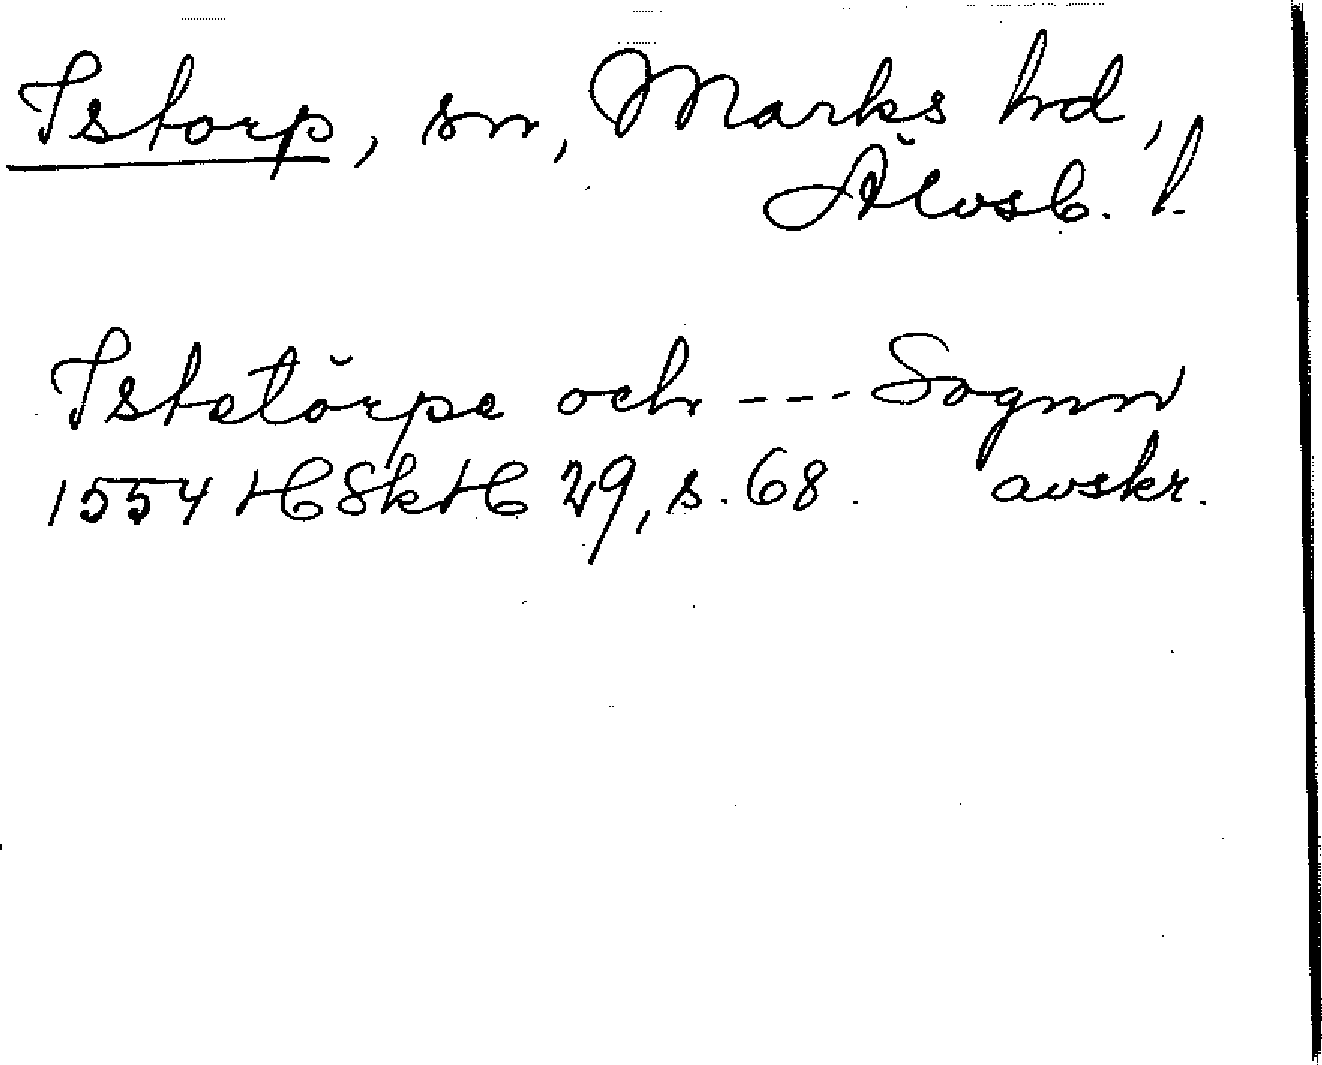 Istorp, sn, Marks hd,
Älvsb. l.
Istetörpe och --- Sognn
1554 HSkH 29, s. 68. avskr.